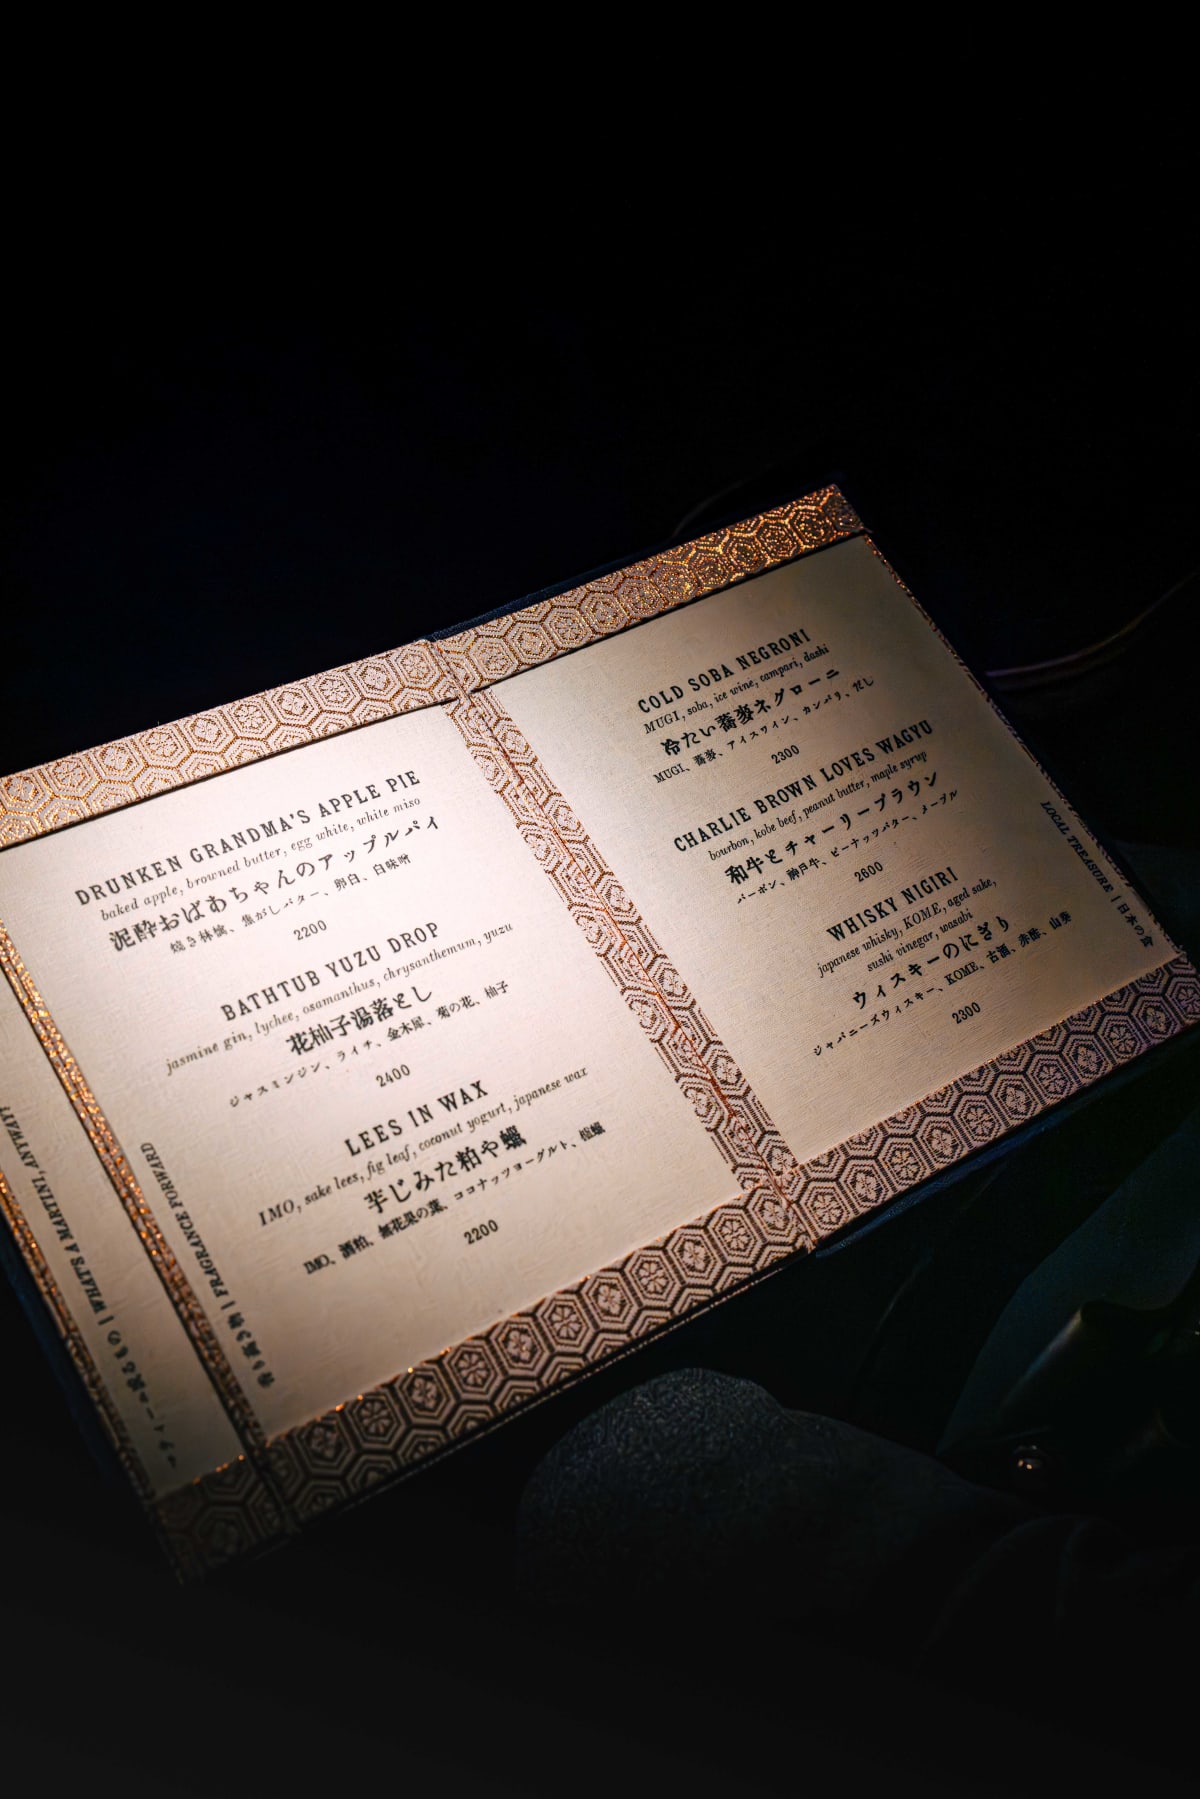 DRUNKEN GRANDMA'S APPLE PIE
baked apple, browned butter, egg white, white miso
泥酔おばあちゃんのアップルパイ
焼き林檎、焦がしバター、卵白、白味噌
2200
BATHTUB YUZU DROP
jasmine gin, lychee, osamanthus, chrysanthemum, yuzu
花柚子湯落とし
ジャスミンジン、ライチ、金木犀、菊の花、柚子
2400
LEES IN WAX
IMO, sake lees, fig leaf, coconut yogurt, japanese wax
芋じみた粕や蝋
IMO、酒粕、無花果の葉、ココナッツヨーグルト、櫨蝋
2200
香り高き物 | FRAGRANCE FORWARD
WHAT'S A MARTINI, ANYWAY?
COLD SOBA NEGRONI
MUGI, soba, ice wine, campari, dashi
冷たい蕎麦ネグローニ
MUGI、蕎麦、アイスワイン、カンパリ、だし
2300
CHARLIE BROWN LOVES WAGYU
bourbon, kobe beef, peanut butter, maple syrup
和牛とチャーリーブラウン
バーボン、神戸牛、ピーナッツバター、メープル
2600
WHISKY NIGIRI
japanese whisky, KOME, aged sake,
sushi vinegar, wasabi
ウィスキーのにぎり
ジャパニーズウィスキー、KOME、古酒、赤酢、山葵
2300
LOCAL TREASURE | 日本の